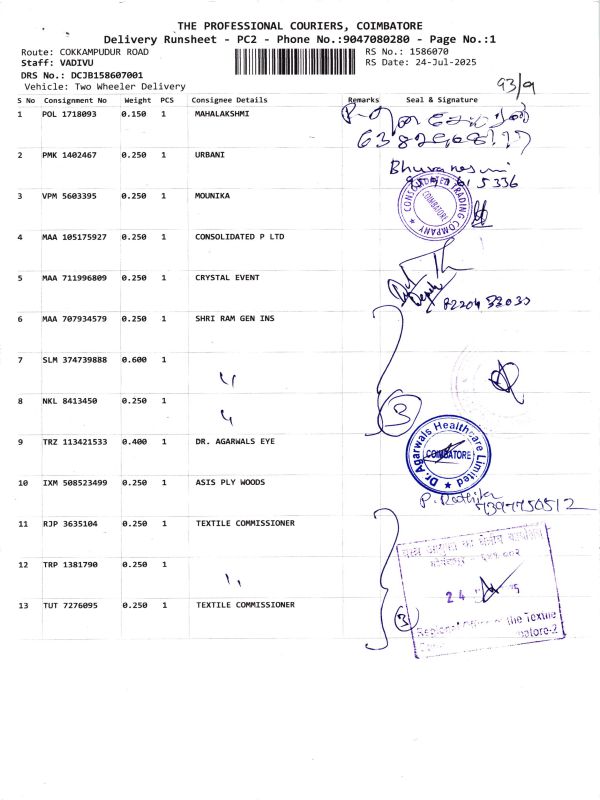 THE PROFESSIONAL COURIERS, COIMBATORE
Delivery Runsheet - PC2 - Phone No.:9047080280 - Page No.:1
Route: COKKAMPUDUR ROAD
RS No.: 1586070
Staff: VADIVU
RS Date: 24-Jul-2025
DRS No.: DCJB158607001
Vehicle: Two Wheeler Delivery
93/9
S No Consignment No Weight PCS Consignee Details Remarks Seal & Signature
1 POL 1718093 0.150 1 MAHALAKSHMI
2 PMK 1402467 0.250 1 URBANI
3 VPM 5603395 0.250 1 MOUNIKA
CONSOLIDATED TRADING COMPANY
COIMBATORE
4 MAA 105175927 0.250 1 CONSOLIDATED P LTD
5 MAA 711996809 0.250 1 CRYSTAL EVENT
6 MAA 707934579 0.250 1 SHRI RAM GEN INS
7 SLM 374739888 0.600 1
8 NKL 8413450 0.250 1
3
9 TRZ 113421533 0.400 1 DR. AGARWALS EYE
Dr. Agarwals Healthcare Limited
COIMBATORE
10 IXM 508523499 0.250 1 ASIS PLY WOODS
11 RJP 3635104 0.250 1 TEXTILE COMMISSIONER
12 TRP 1381790 0.250 1
24
13 TUT 7276095 0.250 1 TEXTILE COMMISSIONER
3
the Textile